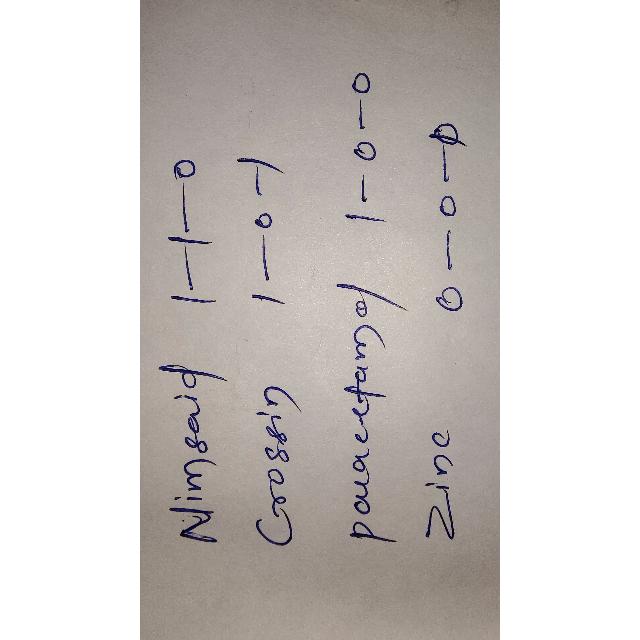 Nimsaid 1-1-0
Crossin 1-0-1
paracetamol 1-0-0
Zinc 0-0-